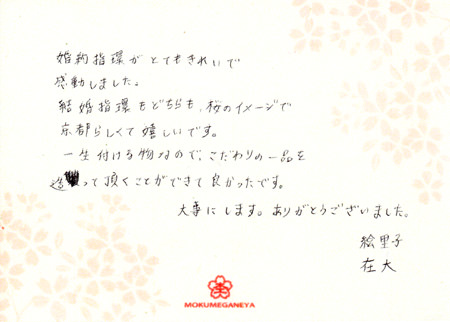 婚約指環がとてもきれいで
感動しました。
結婚指環もどちらも、桜のイメージで
京都らしくて嬉しいです。
一生付ける物なので、こだわりの一品を
造って頂くことができて良かったです。
大事にします。ありがとうございました。
絵里子
在大
MOKUMEGANEYA